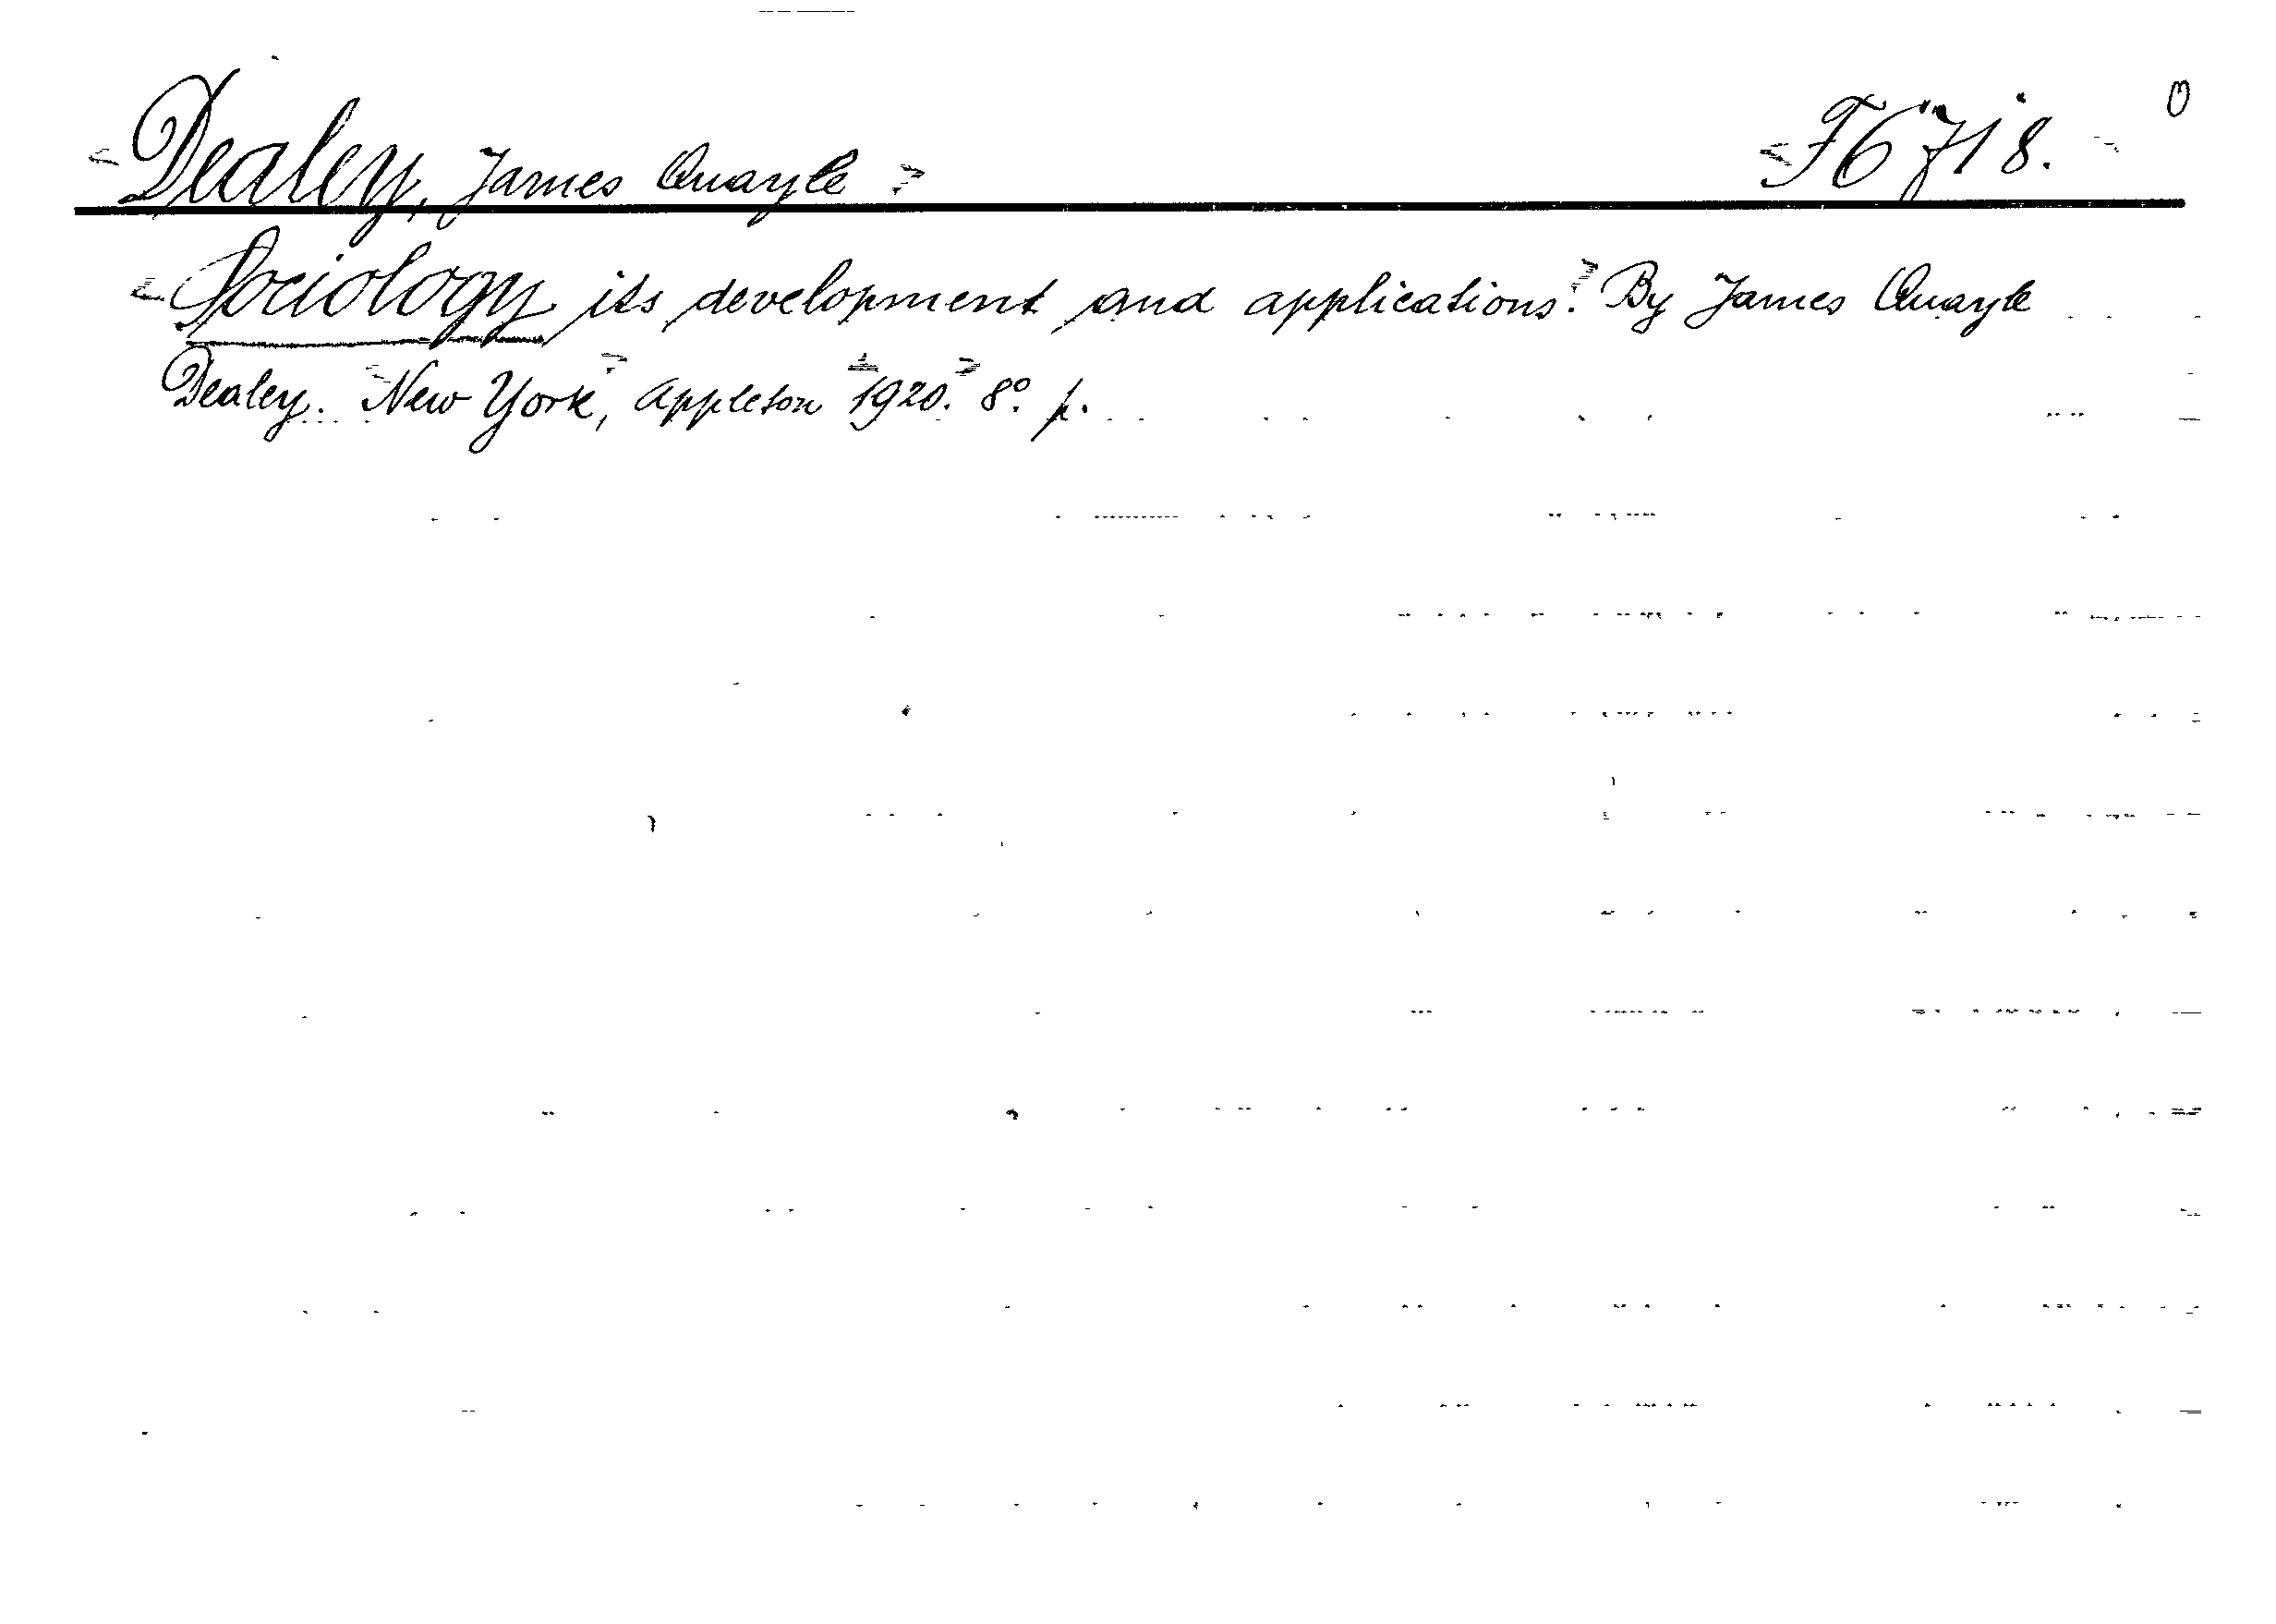 Dealey, James Quayle F6718. 0
Sociology its development and applications. By James Quayle
Dealey. New York, Appleton 1920. 8°. p.